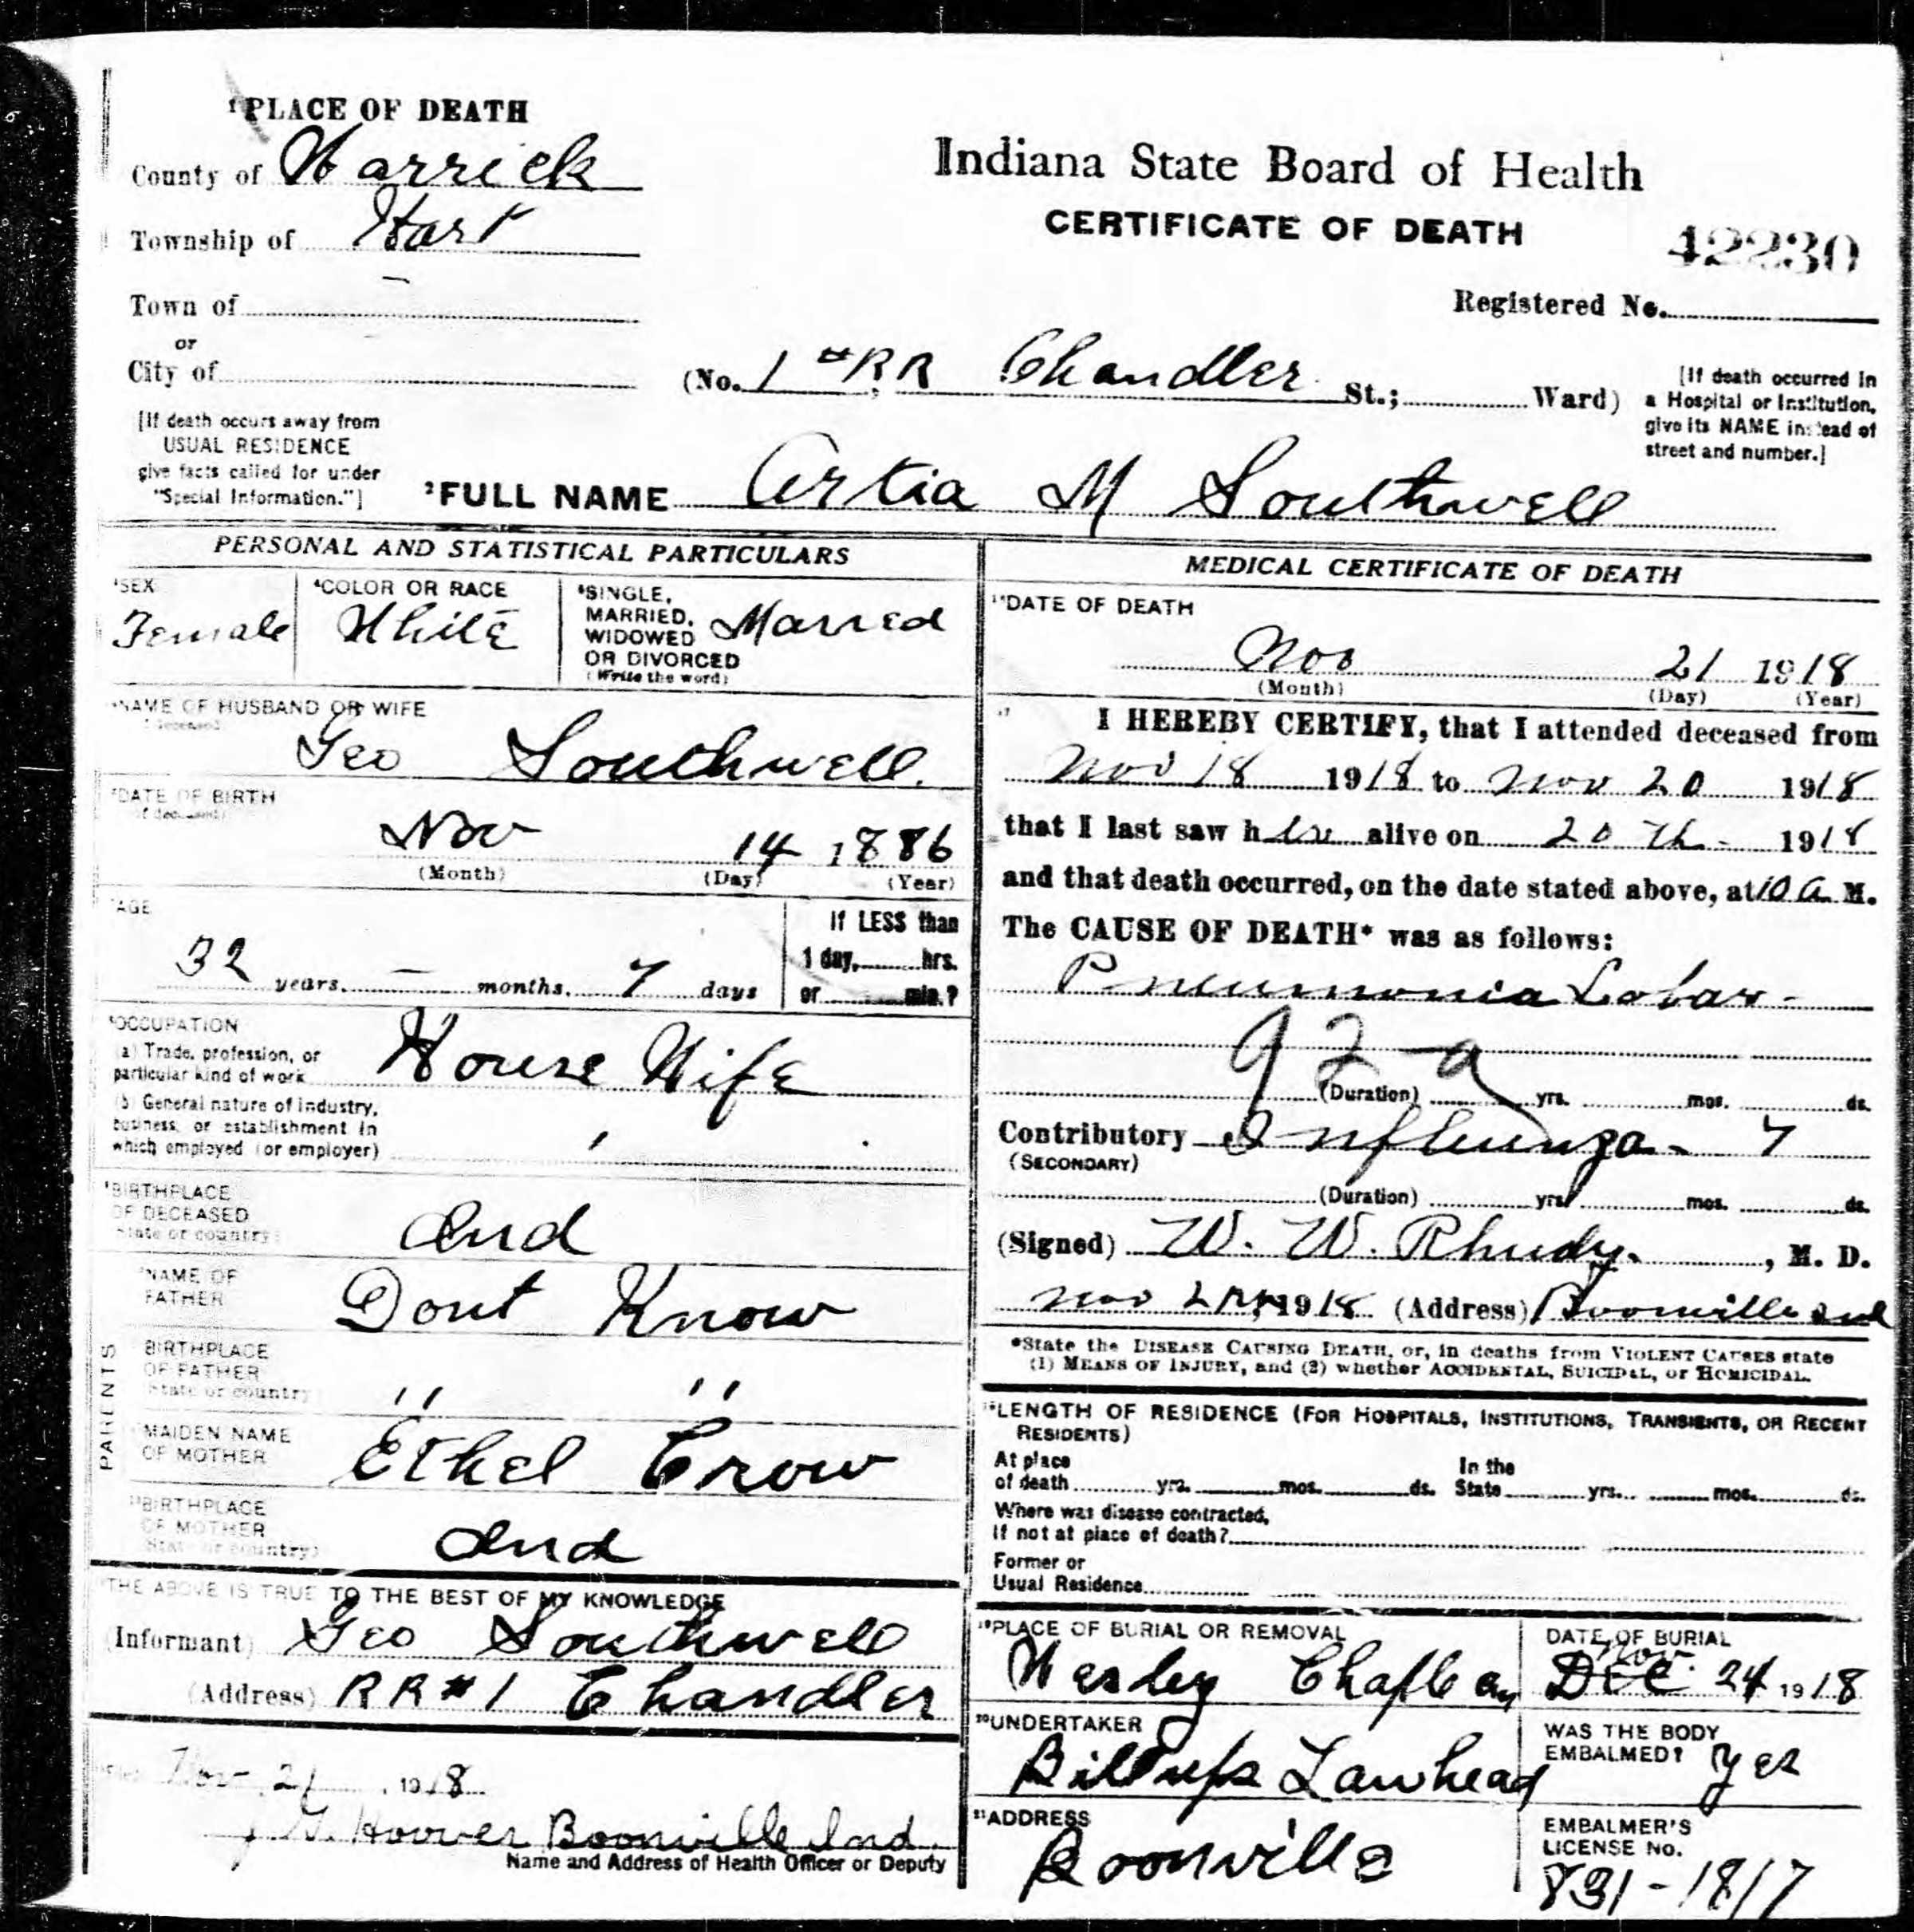 ¹PLACE OF DEATH
County of Warrick
Township of Hart
Town of
or
City of
[If death occurs away from
USUAL RESIDENCE
give facts called for under
"Special Information."]
Indiana State Board of Health
CERTIFICATE OF DEATH
42230
Registered No.
(No. 1 # RR Chandler St.; Ward)
[If death occurred in
a Hospital or Institution,
give its NAME instead of
street and number.]
²FULL NAME Artia M Southwell
PERSONAL AND STATISTICAL PARTICULARS
³SEX
Female
⁴COLOR OR RACE
White
⁵SINGLE,
MARRIED,
WIDOWED
OR DIVORCED
(Write the word)
Married
NAME OF HUSBAND OR WIFE
Geo Southwell.
DATE OF BIRTH
Nov 14 1886
(Month) (Day) (Year)
AGE
32 years. — months. 7 days
If LESS than
1 day, hrs.
or min.?
OCCUPATION
(a) Trade, profession, or
particular kind of work
House Wife
(b) General nature of industry,
business, or establishment in
which employed (or employer)
BIRTHPLACE
OF DECEASED
State or country
Ind
NAME OF
FATHER
Dont Know
PARENTS
BIRTHPLACE
OF FATHER
State or country
" "
MAIDEN NAME
OF MOTHER
Ethel Crow
BIRTHPLACE
OF MOTHER
State or country)
Ind
THE ABOVE IS TRUE TO THE BEST OF MY KNOWLEDGE
(Informant) Geo Southwell
(Address) RR#1 Chandler
Nov 21, 1918
Hoover Boonville Ind.
Name and Address of Health Officer or Deputy
MEDICAL CERTIFICATE OF DEATH
DATE OF DEATH
Nov 21 1918
(Month) (Day) (Year)
I HEREBY CERTIFY, that I attended deceased from
Nov 18 1918 to Nov 20 1918
that I last saw her alive on 20 th - 1918
and that death occurred, on the date stated above, at 10 a. M.
The CAUSE OF DEATH* was as follows:
Pneumonia Lobar -
92-a
(Duration) yrs. mos. ds.
Contributory Influenza - 7
(SECONDARY)
(Duration) yrs. mos. ds.
(Signed) W. W. Rhudy. , M. D.
Nov 1918 (Address) Boonville Ind
*State the DISEASE CAUSING DEATH, or, in deaths from VIOLENT CAUSES state
(1) MEANS OF INJURY, and (2) whether ACCIDENTAL, SUICIDAL, or HOMICIDAL.
LENGTH OF RESIDENCE (FOR HOSPITALS, INSTITUTIONS, TRANSIENTS, OR RECENT
RESIDENTS)
At place
of death yrs. mos. ds.
In the
State yrs. mos. ds.
Where was disease contracted,
If not at place of death?
Former or
Usual Residence
¹⁹PLACE OF BURIAL OR REMOVAL
Wesley
DATE OF BURIAL
Nov.
Dec 24 1918
²⁰UNDERTAKER
Billups Lawhead
WAS THE BODY
EMBALMED? yes
²¹ADDRESS
Boonville
EMBALMER'S
LICENSE No.
831-1817